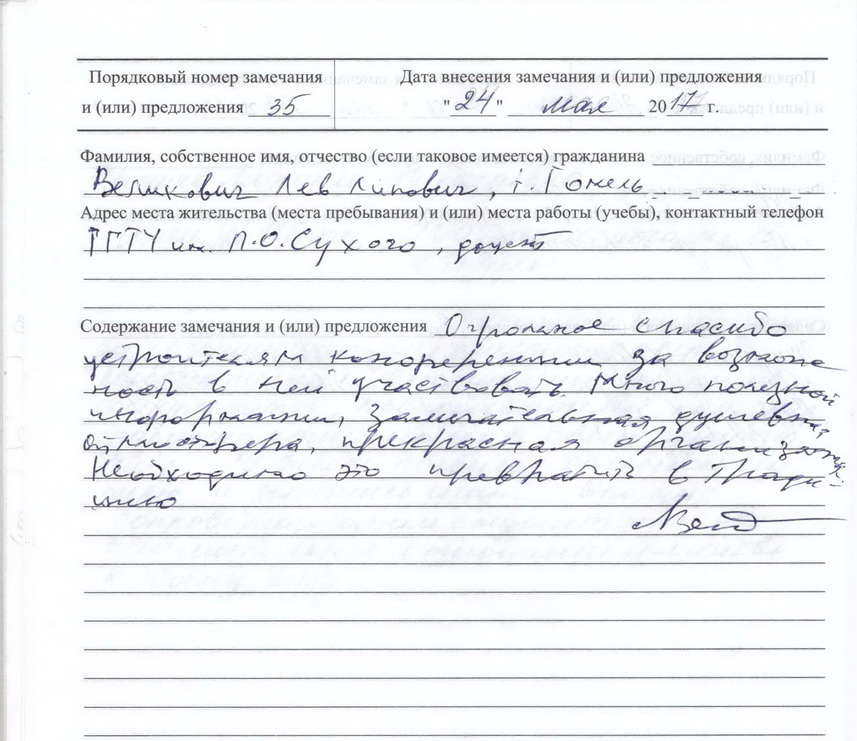 Порядковый номер замечания
и (или) предложения 35
Дата внесения замечания и (или) предложения
"24" мая 2017 г.
Фамилия, собственное имя, отчество (если таковое имеется) гражданина
Великович Лев Липович, г. Гомель
Адрес места жительства (места пребывания) и (или) места работы (учебы), контактный телефон
ГГТУ им. П.О.Сухого, доцент
Содержание замечания и (или) предложения Огромное спасибо
устроителям конференции за возмож-
ность в ней участвовать. Много полезной
информации, замечательная душевная
атмосфера, прекрасная организация.
Необходимо это превратить в тради-
цию